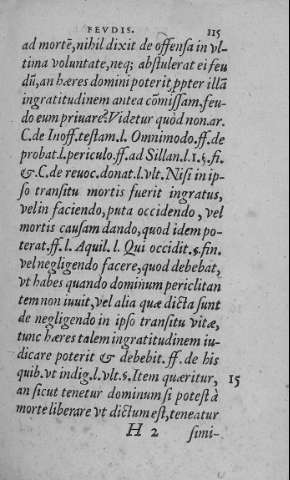 FEVDIS. 115
ad mortē, nihil dixit de offensa in vl-
tima voluntate, neq; abstulerat ei feu
dū, an hæres domini poterit ꝓpter illā
ingratitudinem antea cōmissam, feu-
do eum priuare? Videtur quòd non. ar.
C. de Inoff. testam. l. Omnimodo. ff. de
probat. l. periculo. ff. ad Sillan. l. 1. §. fi.
& C. de reuoc. donat. l. vlt. Nisi in ip-
so transitu mortis fuerit ingratus,
vel in faciendo, puta occidendo, vel
mortis causam dando, quod idem po-
terat. ff. l. Aquil. l. Qui occidit. §. fin.
vel negligendo facere, quod debebat,
vt habes quando dominum periclitan
tem non iuuit, vel alia quæ dicta sunt
de negligendo in ipso transitu vitæ,
tunc hæres talem ingratitudinem iu-
dicare poterit & debebit. ff. de his
quib. vt indig. l. vlt. §. Item quæritur, 15
an sicut tenetur dominum si potest à
morte liberare vt dictum est, teneatur
H 2 simi-